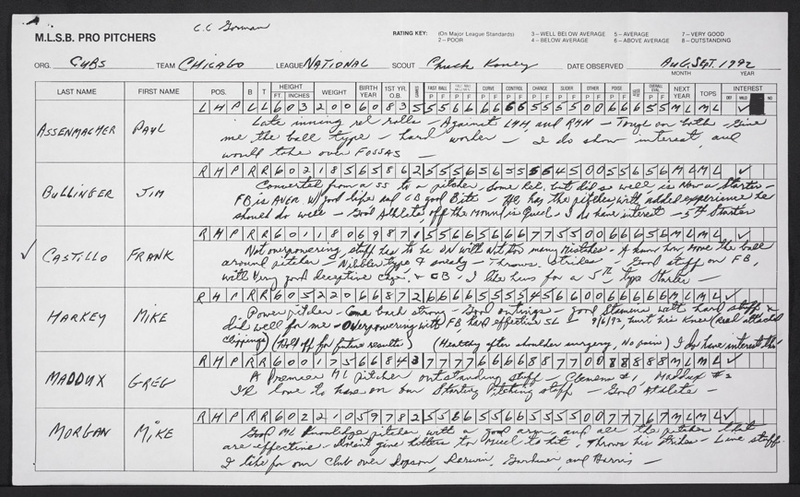 C.C. Gorman
M.L.S.B. PRO PITCHERS
RATING KEY: (On Major League Standards) 3 – WELL BELOW AVERAGE 5 – AVERAGE 7 – VERY GOOD
2 – POOR 4 – BELOW AVERAGE 6 – ABOVE AVERAGE 8 – OUTSTANDING
ORG. CUBS TEAM CHICAGO LEAGUE NATIONAL SCOUT Chuck Koney DATE OBSERVED AUG, SEPT. 1992
MONTH YEAR
LAST NAME FIRST NAME POS. B T HEIGHT WEIGHT BIRTH YEAR 1ST YR. O.B. FAST BALL CURVE CONTROL CHANGE SLIDER OTHER POISE NEXT YEAR TOPS INTEREST
FT. INCHES P F P F P F P F P F P F P F NO
ASSENMACHER PAUL L H P L L 6 0 3 2 0 0 6 0 8 3
Late inning rel role – Against LHH, and RHH – Tough on both – Give
me the ball type – hard worker – I do show interest, and
would take over FOSSAS –
BULLINGER JIM R H P R R 6 0 2 1 8 5 6 5 8 6
Converted from a SS to – pitcher. Some Rel. but did so well is now a Starter –
FB is AVER w/ good life and CB good Bite – He has the pitches with added experience he
should do well – Good Athlete, off the mound is quick. I do have interest – 5th Starter
CASTILLO FRANK R H P R R 6 0 1 1 8 0 6 9 8 7
Not overpowering, stuff has to be ON with not too many mistakes. move the ball
around pitcher – Nibbler type & sneaky – Throws Strikes – Good stuff on FB,
with very good deceptive chge. & CB – I like him for a 5th type Starter –
HARKEY MIKE R H P R R 6 0 5 2 2 0 6 6 8 7
Power pitcher – Come back strong – Good outings – good Stamina with hard stuff &
did well for me – Overpowering with FB, hard effective SL & 9/6/92, hurt his knee (Real attached
Clippings) (Hold off for future results) (Healthy after shoulder surgery, No pain) I do have interest
MADDUX GREG R H P R R 6 0 0 1 7 5 6 6 8 4
A Premier ML pitcher outstanding stuff – Clemens #1, Maddux #2
I'd love to have on our Starting Pitching staff – Good Athlete –
MORGAN MIKE R H P R R 6 0 2 2 1 0 5 9 7 8
Good ML Knowledge pitcher with a good arm and all the pitches that
are effective. Doesn't give hitters too much to hit. Throws his strikes – Live stuff
I like for our club over Dopson, Darwin, Gardiner, and Harris –